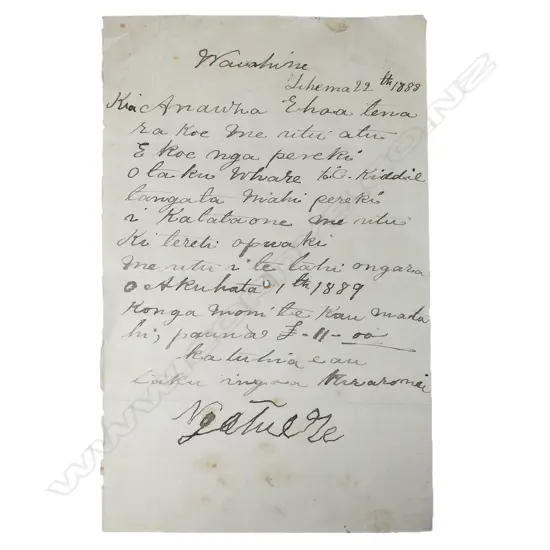 Waiohine
Tihema 22th 1888
Kia Anawha Ehoa tena
ra koe me utu atu
E koe nga pereki
o taku whare H.C. Kiddle
tangata Mahi pereki
i Kalataone me utu
Ki tereti opuaki
me utu i te tahi ongaraa
o Akuhata 1th 1889
Konga moni te kau mada
hi, pauna £-11-00
ka tuhia e au
taku ingoa
Ngatuere